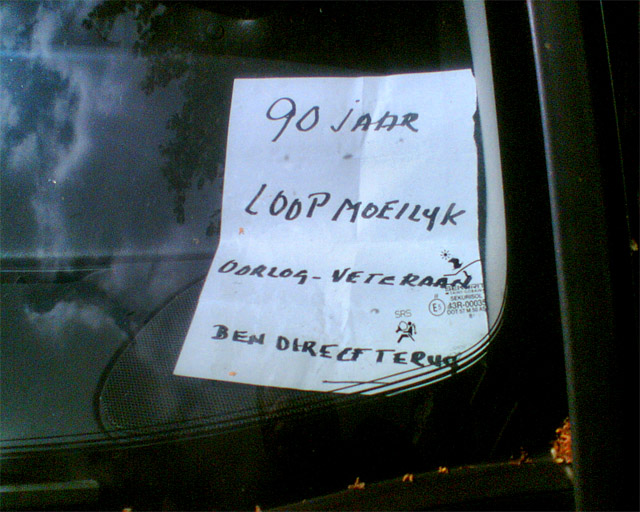 90 JAAR
LOOP MOEILYK
OORLOG-VETERAAN
SRS
SEKURISOL
43R-00035
BEN DIRECT TERUG